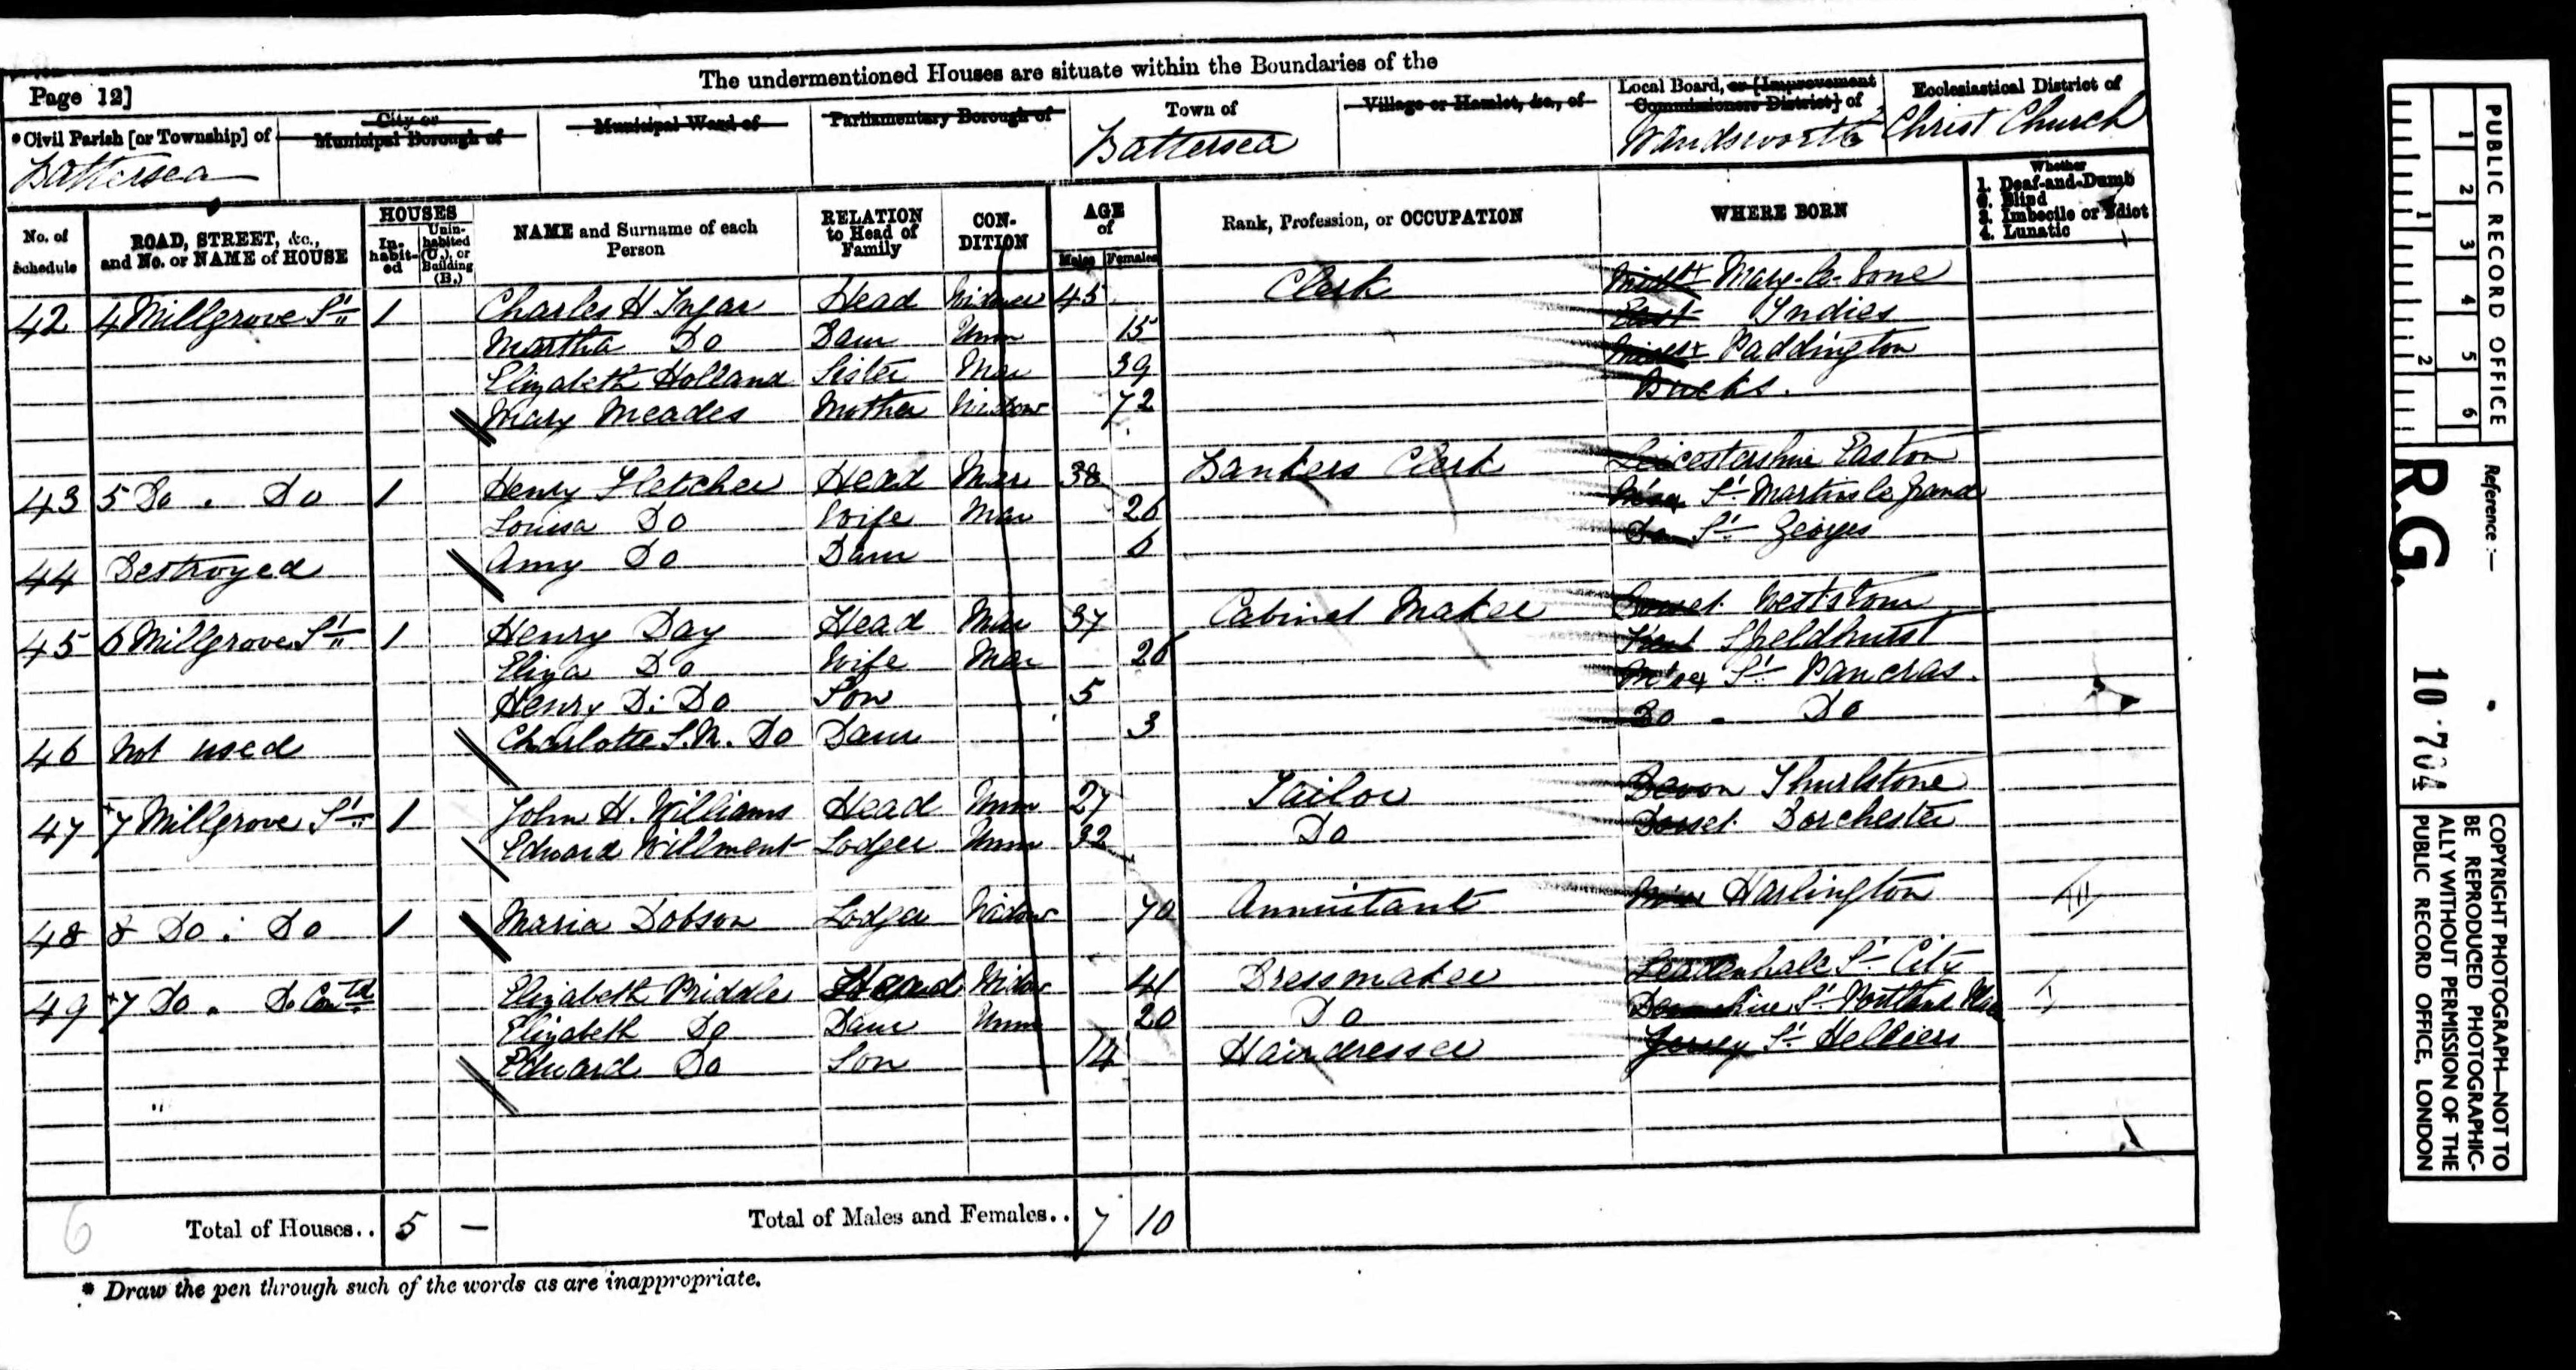 The undermentioned Houses are situate within the Boundaries of the
Page 12]
*Civil Parish [or Township] of
Battersea
City or Municipal Borough of
Municipal Ward of
Parliamentary Borough of
Town of
Battersea
Village or Hamlet, &c., of
Local Board, or [Improvement Commissioners District] of
Wandsworth
Ecclesiastical District of
Christ Church
No. of Schedule
ROAD, STREET, &c., and No. or NAME of HOUSE
HOUSES
In-habit-ed
Unin-habited (U.), or Building (B.)
NAME and Surname of each Person
RELATION to Head of Family
CON-DITION
AGE of
Males Females
Rank, Profession, or OCCUPATION
WHERE BORN
Whether
1. Deaf-and-Dumb
2. Blind
3. Imbecile or Idiot
4. Lunatic
42 4 Millgrove St 1 Charles H Head Widower 45 Clerk Middx Mary-le-bone
Martha Do Daur Unm 15 East Indies
Elizabeth Holland Sister Mar 39 Middx Paddington
Mary Meades Mother Widow 72 Bucks.
43 5 Do . Do 1 Henry Fletcher Head Mar 38 Bankers Clerk Leicestershire Easton
Louisa Do Wife Mar 26 St Martins le Grand
44 Destroyed Amy Do Daur 6 Do St Georges
45 6 Millgrove St 1 Henry Day Head Mar 37 Cabinet Maker Dorset
Eliza Do Wife Mar 26 Kent Speldhurst
Henry D: Do Son 5 St Pancras.
46 Not used Charlotte S.N. Do Daur 3 Do . Do
47 +7 Millgrove St 1 John H. Williams Head Unm 27 Tailor Devon Thurlstone
Edward Willment Lodger Unm 32 Do Dorset Dorchester
48 8 Do : Do 1 Maria Dobson Lodger Widow 70 Annuitant Harlington
49 +7 Do . Do Contd Elizabeth Priddle Head Widow 41 Dressmaker Leadenhall St City
Elizabeth Do Daur Unm 20 Do Devonshire St Portland Place
Edward Do Son 14 Hairdresser Jersey St Helliers
6
Total of Houses.. 5 — Total of Males and Females.. 7 10
* Draw the pen through such of the words as are inappropriate.
PUBLIC RECORD OFFICE
1 2 3 4 5 6
1 2
Reference:—
R.G. 10 704
COPYRIGHT PHOTOGRAPH—NOT TO
BE REPRODUCED PHOTOGRAPHIC-
ALLY WITHOUT PERMISSION OF THE
PUBLIC RECORD OFFICE, LONDON